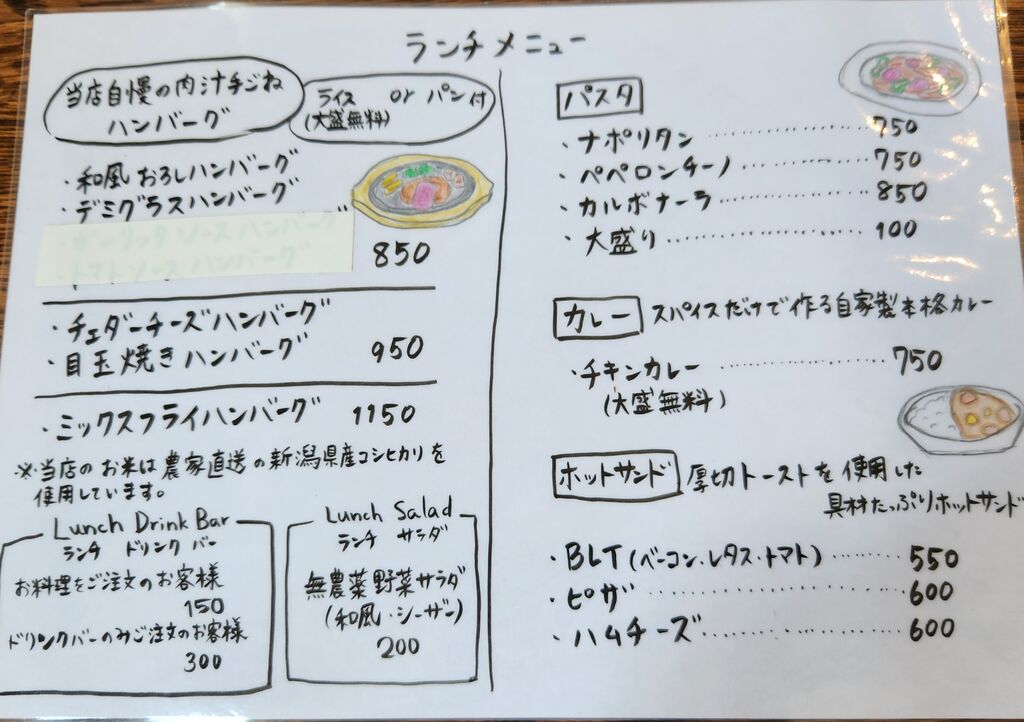 ランチメニュー
当店自慢の肉汁手ごね
ハンバーグ
ライス or パン付
(大盛無料)
・和風おろしハンバーグ
・デミグラスハンバーグ
・ガーリックソースハンバーグ
・トマトソースハンバーグ
850
・チェダーチーズハンバーグ
・目玉焼きハンバーグ 950
・ミックスフライハンバーグ 1150
※当店のお米は農家直送の新潟県産コシヒカリを
使用しています。
Lunch Drink Bar
ランチ ドリンク バー
お料理をご注文のお客様
150
ドリンクバーのみご注文のお客様
300
Lunch Salad
ランチ サラダ
無農薬野菜サラダ
(和風・シーザー)
200
パスタ
・ナポリタン 750
・ペペロンチーノ 750
・カルボナーラ 850
・大盛り 100
カレー スパイスだけで作る自家製本格カレー
・チキンカレー 750
(大盛無料)
ホットサンド 厚切トーストを使用した
具材たっぷりホットサンド
・BLT(ベーコン・レタス・トマト) 550
・ピザ 600
・ハムチーズ 600